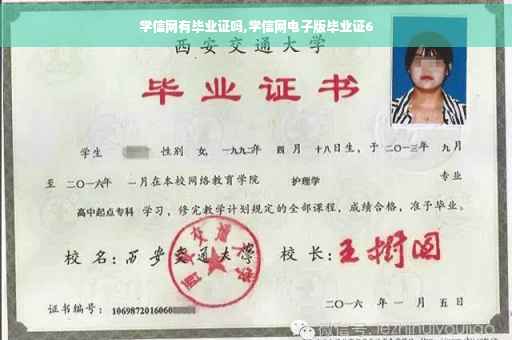 学信网有毕业证吗,学信网电子版毕业证6
西安交通大学
毕业证书
学生 性别 女, 一九九二年 四月 十八日生, 于 二〇一三年 九月
至 二〇一六年 一月在本校网络教育学院 护理学 专业
高中起点专科 学习, 修完教学计划规定的全部课程, 成绩合格, 准予毕业。
校名: 西安交通大学 校长: 王树国
西安交通大学
证书编号: 1069872016060
二〇一六年 一月 五日
微信号: jezhihuiyoujiao